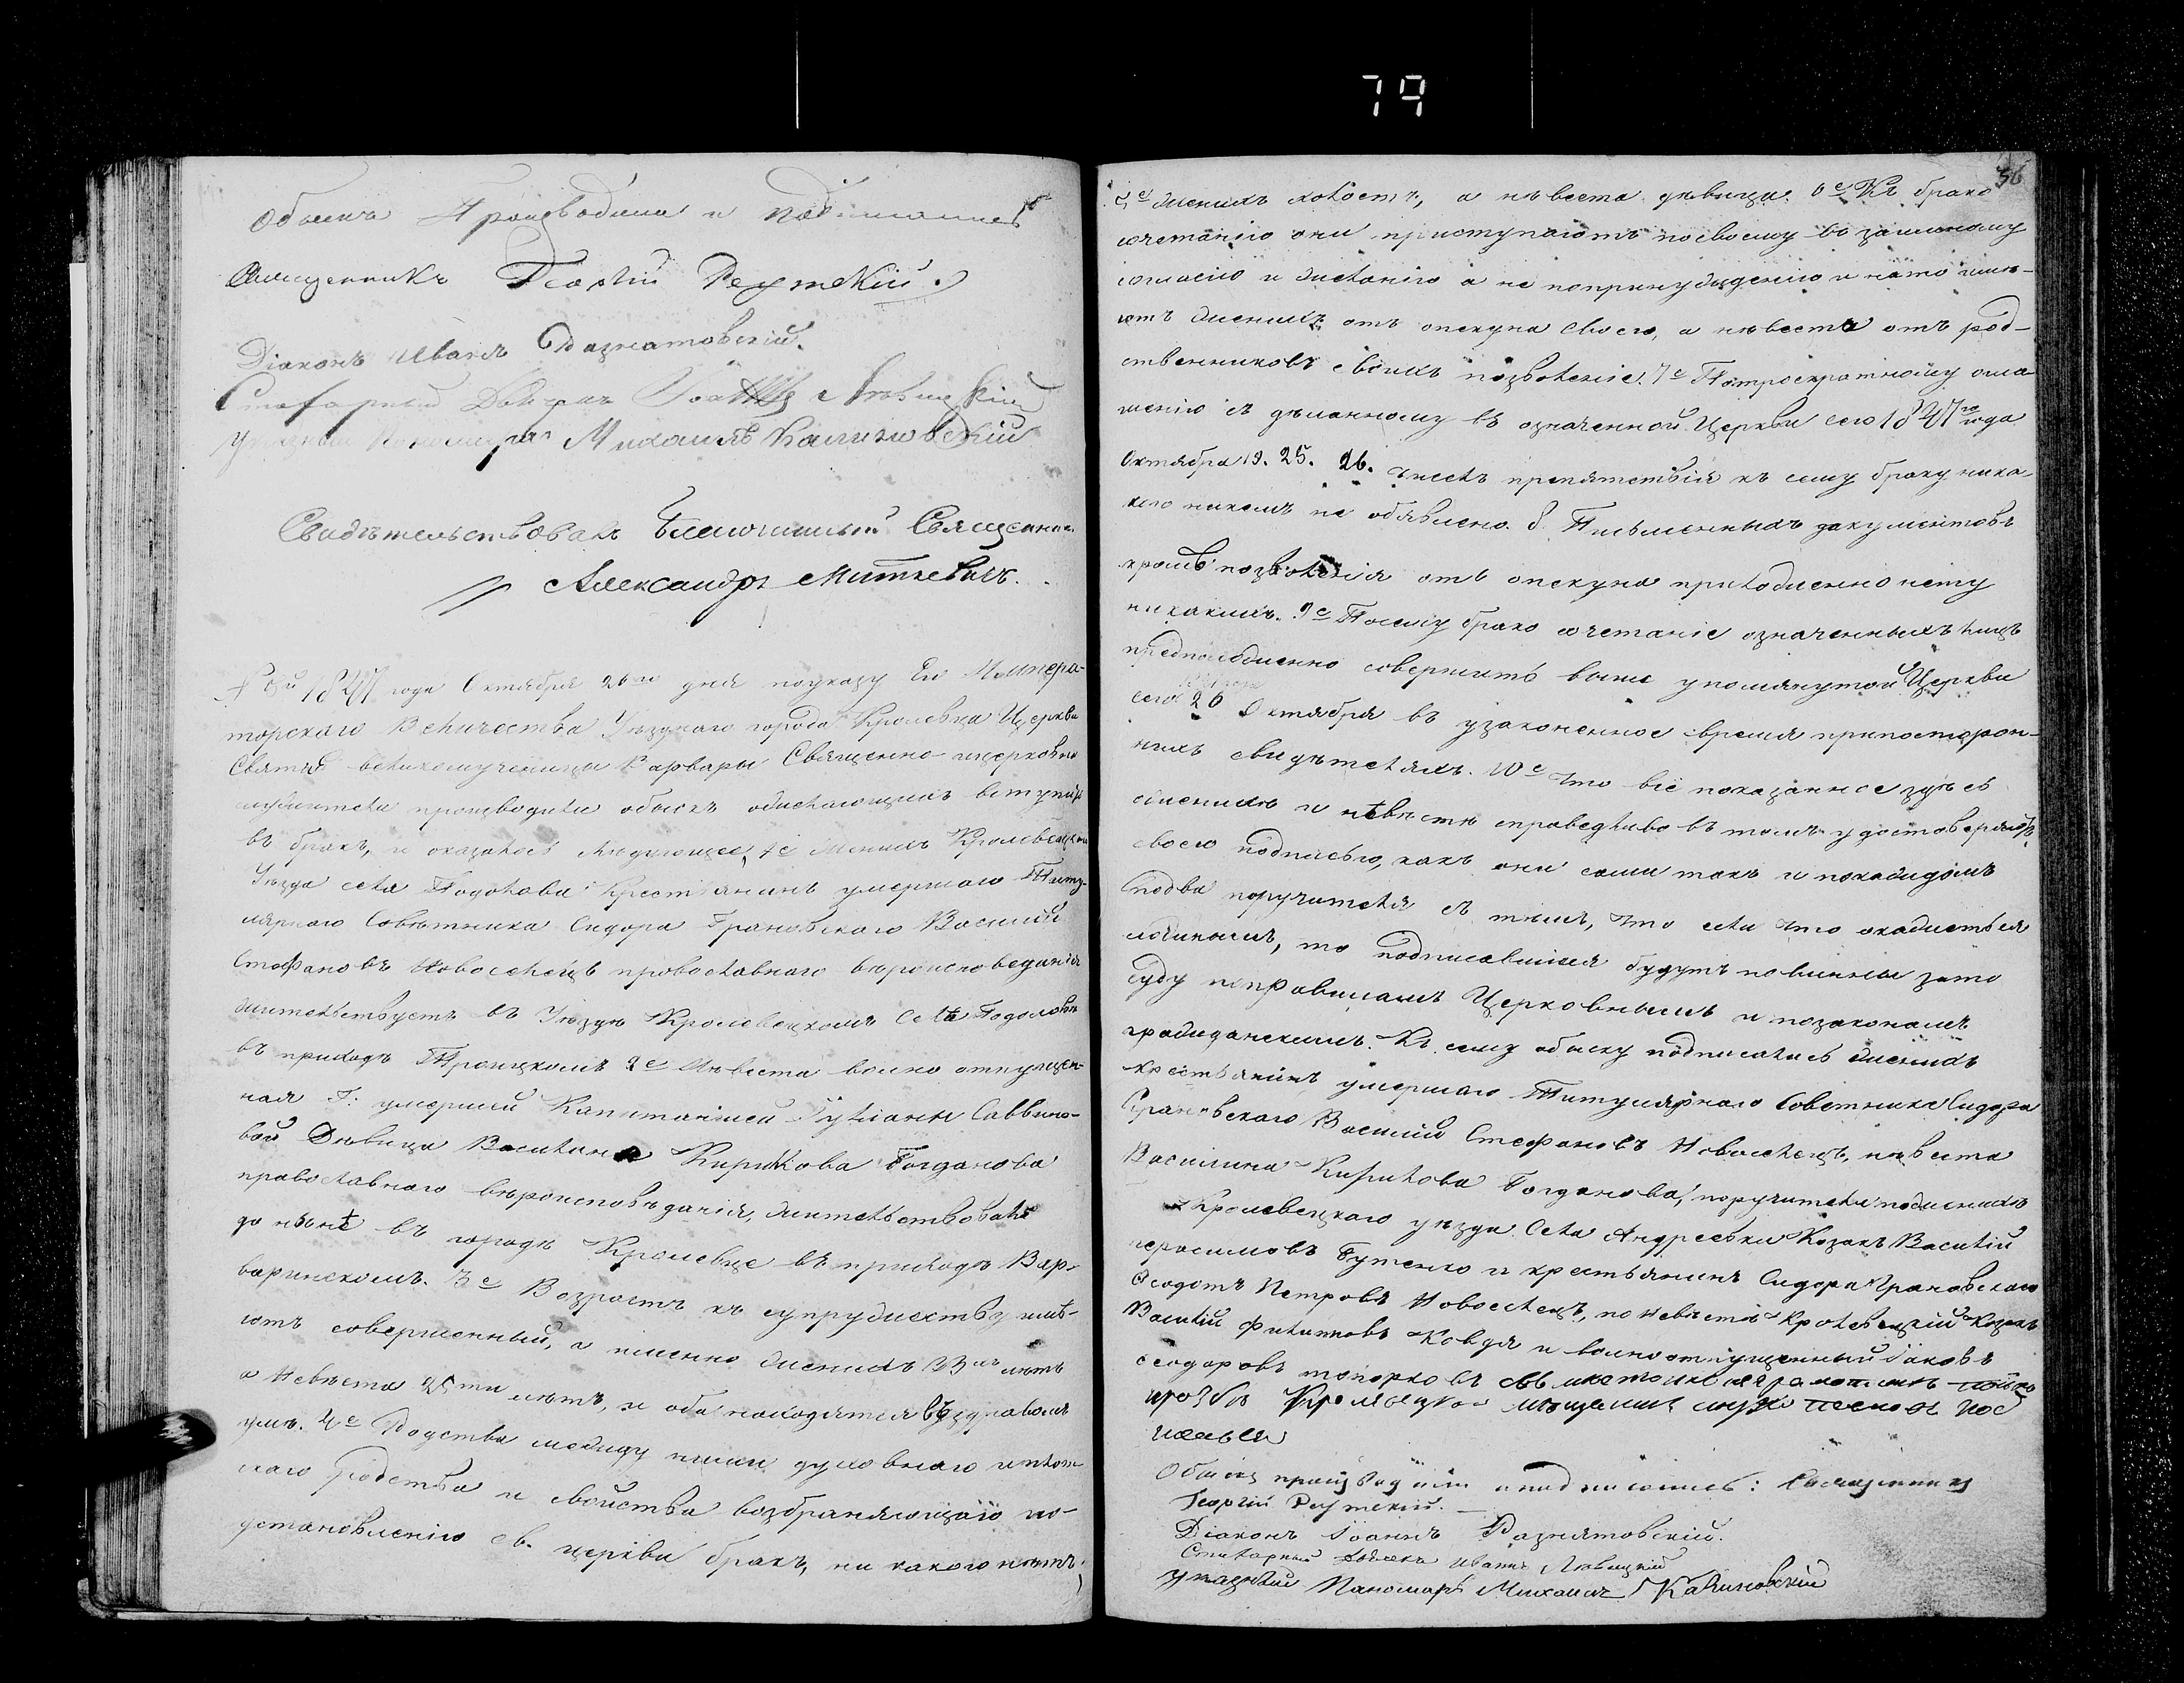 79
Обыскъ Производили и подписались
Священникъ Георгій Рехтскій
Діаконъ Иванъ Разнатовскій.
Стихарный Дьячекъ Іоаннъ Любицкій
указный Пономарь Михаилъ Калиновскій
Свидѣтельствовалъ Благочинный Священник
Александръ Миткевичь.
1847 года Октября 26го дня поуказу Его Импера-
торскаго Величества Уѣзднаго города Кролевца Церкви
Святыя великомученицы Варвары Священно-ицерковно
служители производили обыскъ о желающихъ вступить
въ бракъ, и оказалось слѣдующее, 1е Женихъ Кролевецкаго
Уѣзда села Подолова Крестьянинъ умершаго Титу-
лярнаго Совѣтника Сидора Грановскаго Василій
Стефановъ Новоселецъ провославнаго вѣроисповеданія
жительствуетъ въ Уѣздѣ Кролевецкомъ Селѣ Подоловѣ
въ приходѣ Троицкомъ 2е Невѣста волно отпущен-
ная Г: умершей Капитаншей Іуліаны Саввино-
вой Дѣвица Василина Кирилова Богданова
православнаго вѣроисповѣданія, жительствовала
до нынѣ въ городѣ Кролевце въ приходѣ Вар-
варинскомъ. 3е Возрастъ къ супружеству имѣ-
ютъ совершенный, а именно женихъ 33хъ лѣтъ
а Невѣста 25ти лѣтъ, и оба находятся въ здравомъ
умѣ. 4е Родства между ними духовнаго иплот-
скаго родства и свойства возбраняющаго по-
установленію св. церкви бракъ, ни какого нѣтъ,
36
5е Женихъ холостъ, а невѣста дѣвица. 6е Къ брако
сочетанію они приступаютъ посвоему взаимному
согласію и желанію а не попринужденію и нато имѣ-
ютъ женихъ отъ опекуна своего, а невѣста отъ род-
ственниковъ своихъ позволеніе. 7е Потроекратному огла-
шенію сдѣланному въ означенной Церкви сего 1847го года
Октября 19. 25. 26. чиселъ препятствія къ сему браку ника-
кого никемъ не объявлено. 8. Письменныхъ документовъ
кромѣ позволенія отъ опекуна приложенно нету
никакихъ. 9е Посему брако сочетаніе означенныхъ лицъ
предположенно совершить выше упомянутой Церкви
сего 26 Октября въ узаконенное время припосторон-
нихъ свидѣтеляхъ. 10е Что всё показанное здѣсь
оженихѣ и невѣстѣ справедливо въ томъ удостоверяютъ
своею подписью, какъ они сами такъ и покаждомъ
подва поручителя съ тѣмъ, что если что окажеться
ложнымъ, то подписавшіися будутъ повинны зато
суду поправиламъ Церковнымъ и позаконамъ
гражданскимъ. Къ сему обыску подписались женихъ
крестьянинъ умершаго Титулярнаго Советника Сидора
Грановскаго Василій Стефановъ Новоселецъ, невѣста
Василина Кирилова Богданова, поручители пожениху
Кролевецкаго уѣзда Села Андреевки Козакъ Василій
герасимовъ Бутенко и крестьянинъ Сидора Грановскаго
Ѳеодотъ Петровъ Новоселецъ, по невѣсте Кролевецкій Козакъ
Василій Филиповъ Ковдя и волноотпущенный Іаковъ
ѳеодоровъ топорковъ
прозбѣ Кролевецкой мещанинъ
Обыскъ производили иподписались: Священникъ
Георгій Рехтскій.
Діаконъ Іоаннъ Разнятовскій.
Стихарный дьячекъ Иванъ Любицкій
указный Паномарь Михаилъ Калиновскій